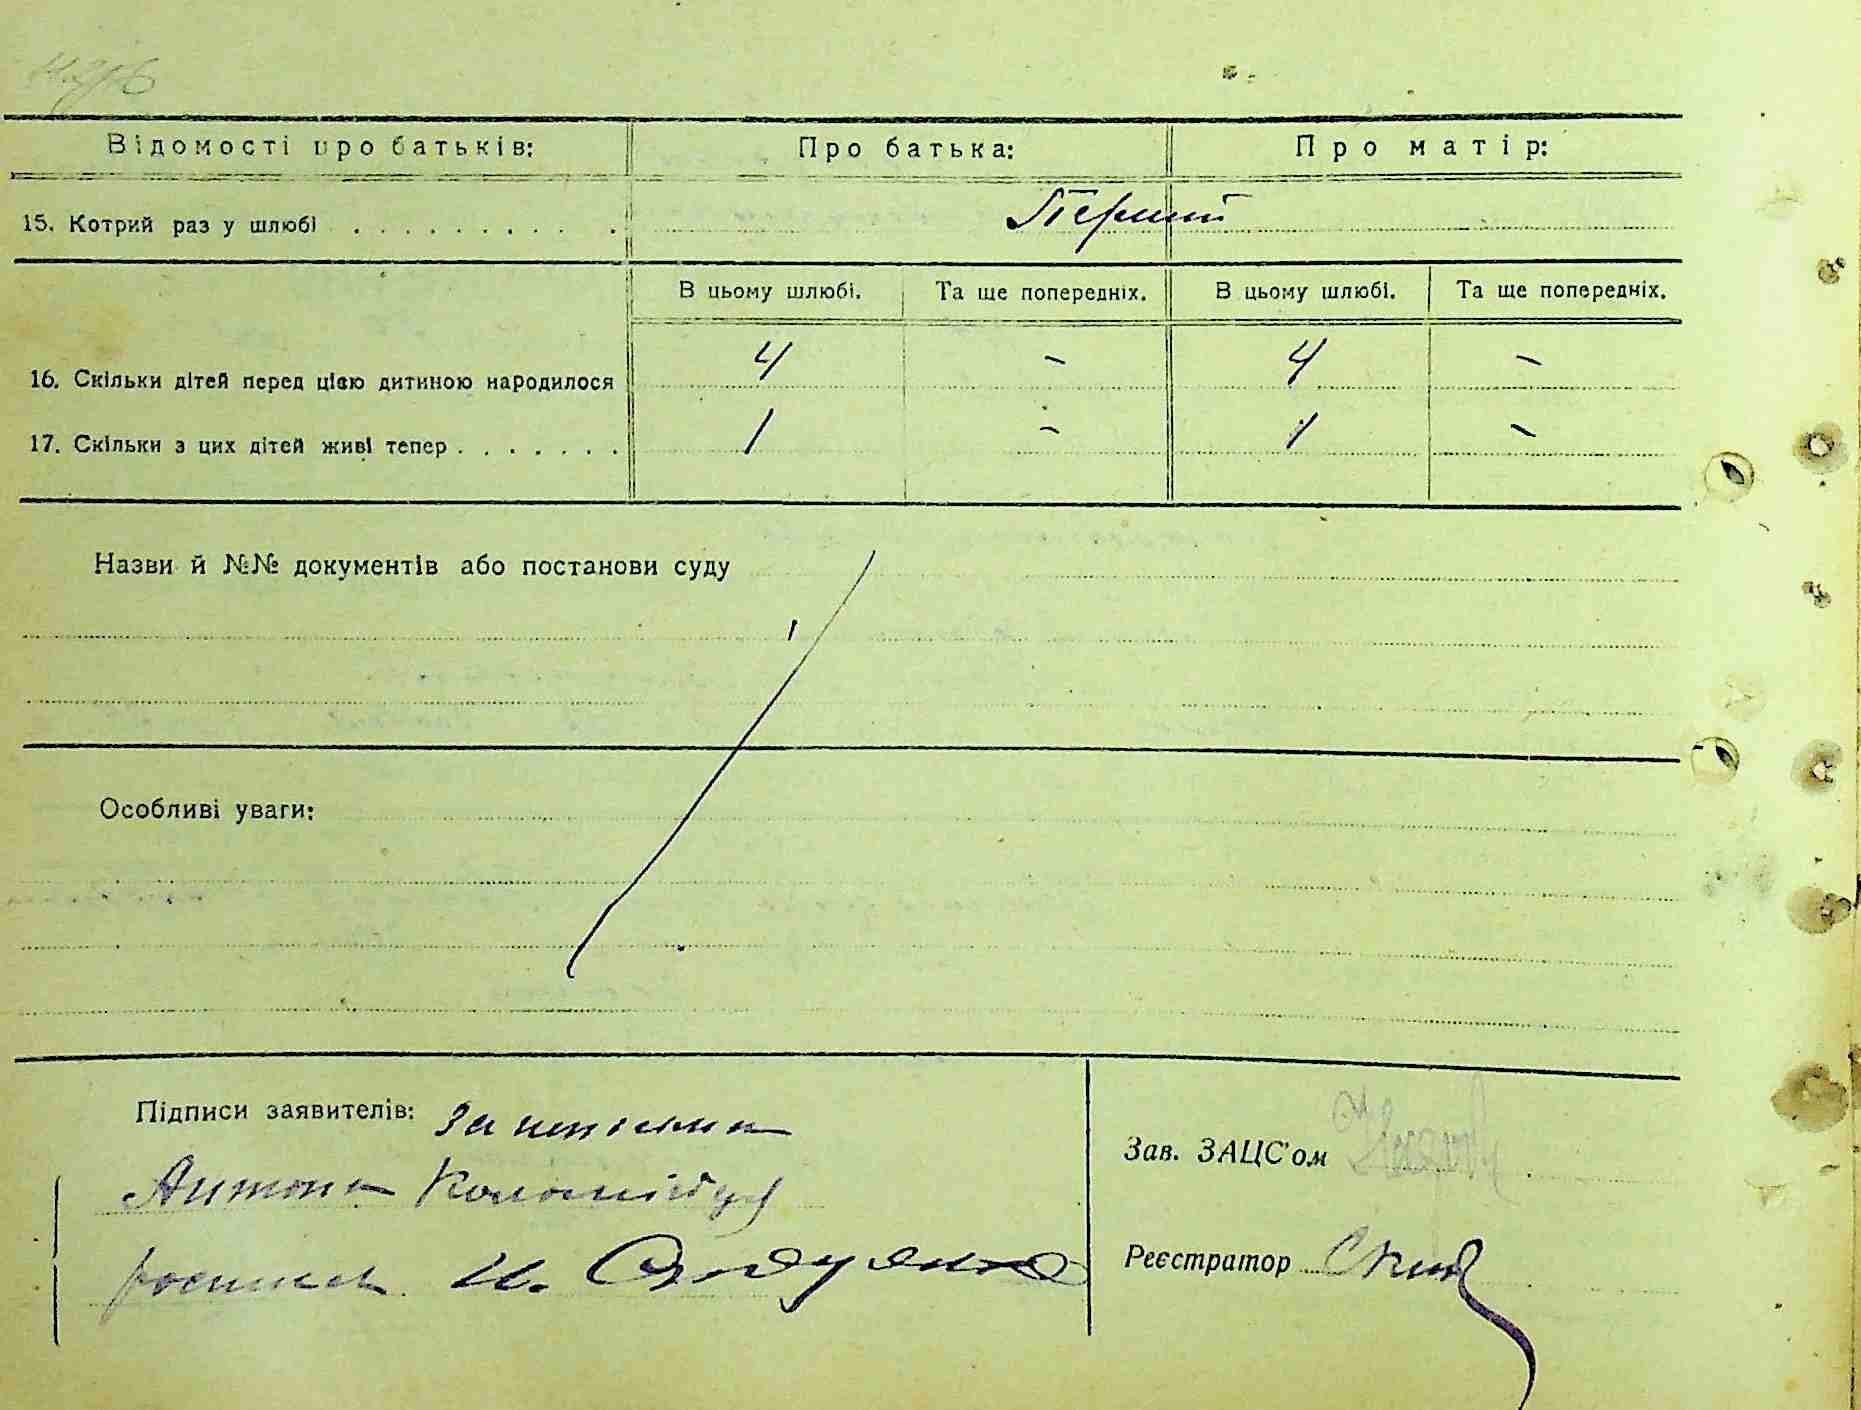 Відомості про батьків: Про батька: Про матір:
15. Котрий раз у шлюбі . . . . . . . . . . . Перший
В цьому шлюбі. Та ще попередніх. В цьому шлюбі. Та ще попередніх.
16. Скільки дітей перед цією дитиною народилося 4 - 4 -
17. Скільки з цих дітей живі тепер . . . . . . . 1 - 1 -
Назви й №№ документів або постанови суду
Особливі уваги:
Підписи заявителів: За неписьмен
Зав. ЗАЦС'ом
Антона Коломійця
Реєстратор
росписа И.